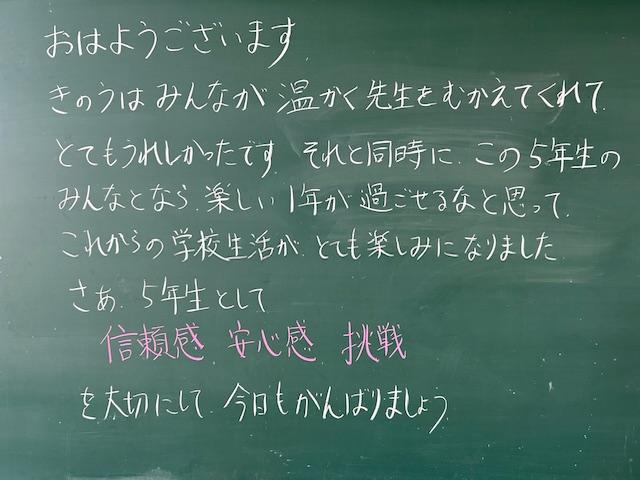 おはようございます
きのうはみんなが温かく先生をむかえてくれて、
とてもうれしかったです。それと同時に、この5年生の
みんなとなら、楽しい1年が過ごせるなと思って、
これからの学校生活が、とても楽しみになりました
さあ、5年生として
信頼感、安心感、挑戦
を大切にして、今日もがんばりましょう。